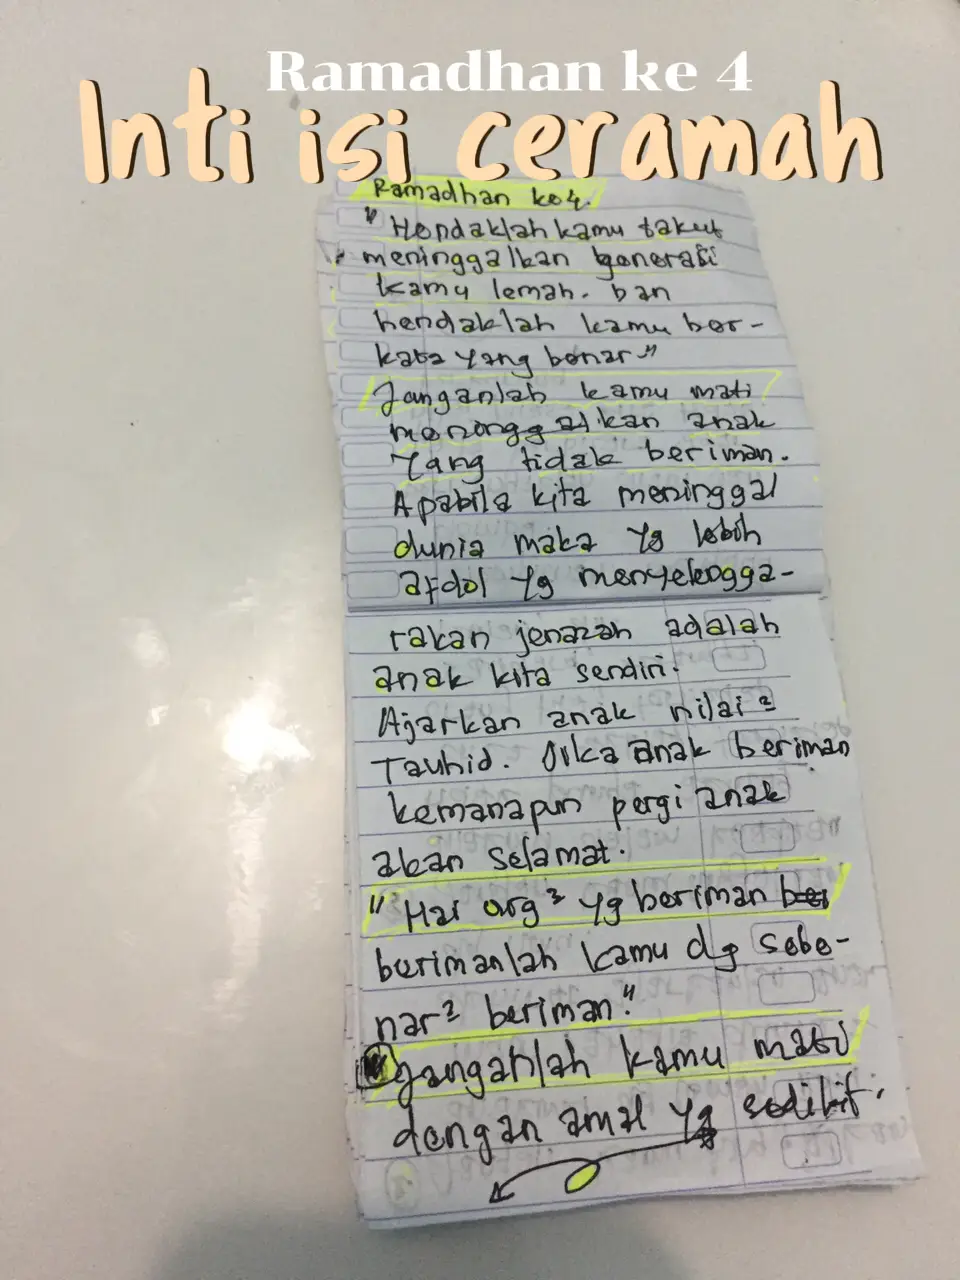 Ramadhan ke 4
Inti isi ceramah
Ramadhan ke 4.
"Hendaklah kamu takut
meninggalkan generasi
kamu lemah. Dan
hendaklah kamu ber-
kata yang benar"
Janganlah kamu mati
meninggalkan anak
Yang tidak beriman.
Apabila kita meninggal
dunia maka yg lebih
afdol yg menyelengga-
rakan jenazah adalah
anak kita sendiri.
Ajarkan anak nilai²
Tauhid. Jika anak beriman
kemanapun pergi anak
akan selamat.
"Hai org² yg beriman
berimanlah kamu dg sebe-
nar² beriman."
Janganlah kamu mati
dengan amal yg sedikit.